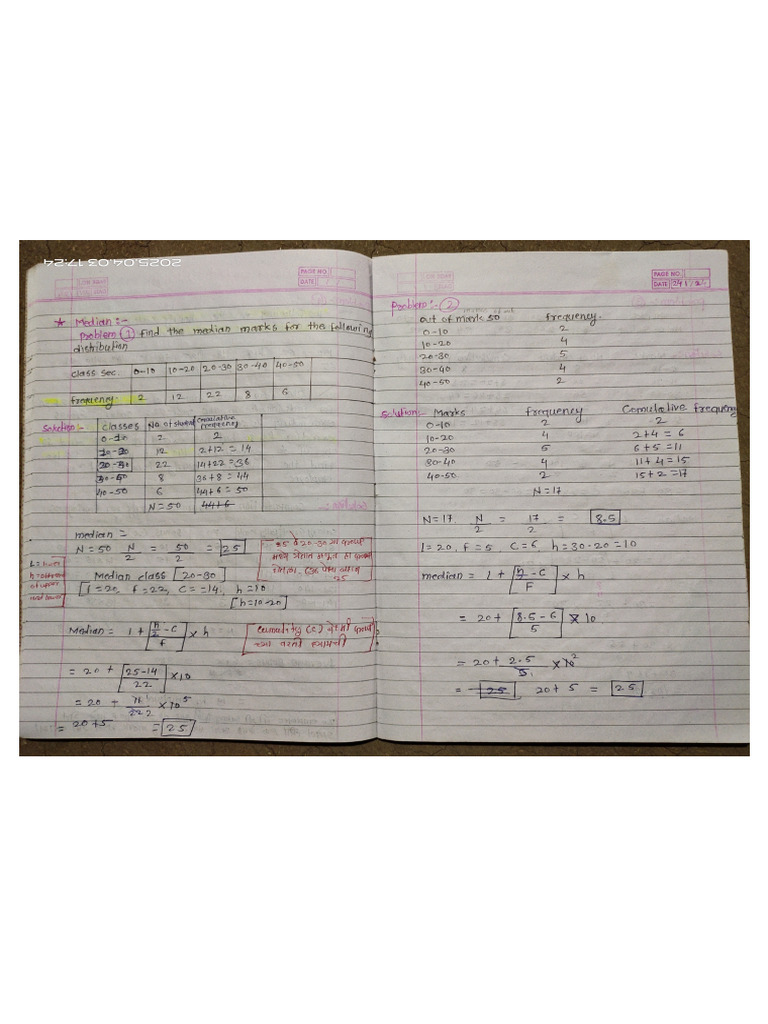 2025.04.03 17:24
PAGE NO.
DATE
★ Median :-
Problem ① find the median marks for the following
distribution
class sec. 0-10 10-20 20-30 30-40 40-50
frequency 2 12 22 8 6
Solution :- classes No. of student cumulative frequency
0-10 2 2
10-20 12 2+12 = 14
20-30 22 14+22 = 36
30-40 8 36+8 = 44
40-50 6 44+6 = 50
N = 50 44+6
median =
N = 50 N/2 = 50/2 = 25
Median class [20-30]
[l = 20, f = 22, C = 14, h = 10
[h = 10-20]
L = lower
h = different
of upper
and lower
25
Median = l + [n/2 - C / f] x h
cumulatig (c)
= 20 + [25-14 / 22] x10
= 20 + 11/22 2 x 10 5
= 20+5 = 25
PAGE NO.
DATE
Problem :- ②
out of mark 50 frequency.
0-10 2
10-20 4
20-30 5
30-40 4
40-50 2
Solution:- Marks frequency Comulative frequency
0-10 2 2
10-20 4 2+4 = 6
20-30 5 6+5 = 11
30-40 4 11+4 = 15
40-50 2 15+2 = 17
N = 17
N = 17 N/2 = 17/2 = 8.5
l = 20, f = 5, C = 6, h = 30-20 = 10
median = l + [n/2 - C / F] x h
= 20 + [8.5 - 6 / 5] x 10
= 20 + 2.5/5 1 x 10 2
= 25 20 + 5 = 25